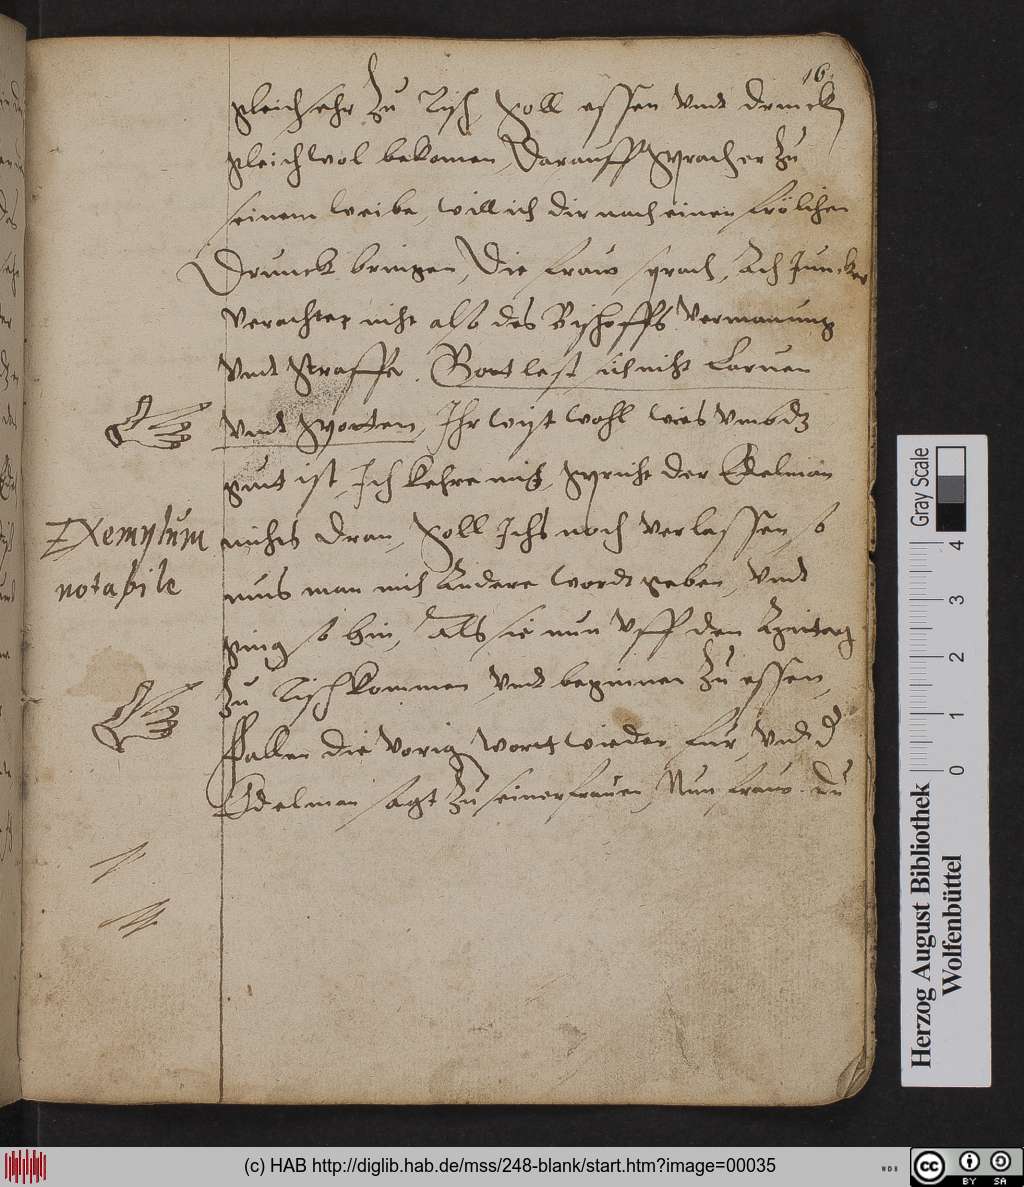 16.
gleich sehr zu Tisch, soll essen vnd drinck
gleich wol bekomen, Darauff sprach er zu
seinem weibe, will ich dir nach einen frölichen
Drunck bringen, Die fraw sprach, Ach Juncker
verachtet nicht also des Bischoffs vermanung
vnd straffe. Gott lest sich nicht Laruen
vnd spotten, Ihr wist wohl wies vmb
gutt ist, Ich kehre mich, spricht der Edelman
nichts dran, soll Ichs noch verlassen, so
mus man mich Andere wordt geben, vnd
ging so hin, Als sie nun vff den
zu Tisch kommen vnd beginnen zu essen,
Fallen die vorig wort wieder für, vnd d
Edelman sagt zu seiner frauen, Nun fraw du
Exemplum
notabile
Gray Scale
4
3
2
1
0
Herzog August Bibliothek
Wolfenbüttel
(c) HAB http://diglib.hab.de/mss/248-blank/start.htm?image=00035
WDB
cc
BY SA